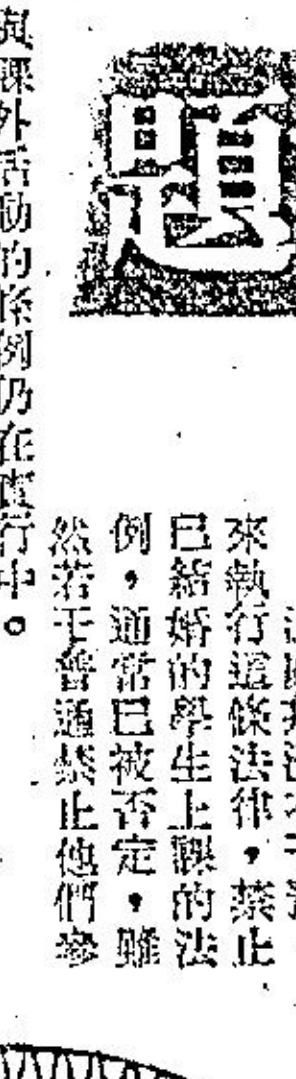 題
來執行這條法律，禁止
已結婚的學生上課的法
例，通常已被否定，雖
然若干普通禁止他們參
與課外活動的條例仍在實行中。